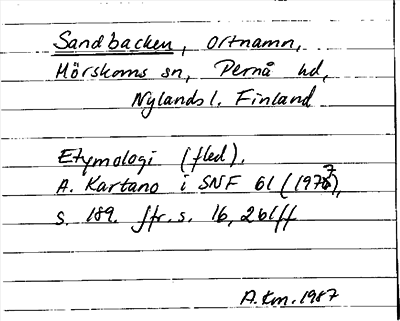 Sandbacken, ortnamn,
Mörskoms sn, Pernå hd,
Nylands l. Finland
Etymologi (fled).
A. Kartano i SNF 61 (1977),
s. 189. jfr. s. 16, 261ff
A.Km. 1987